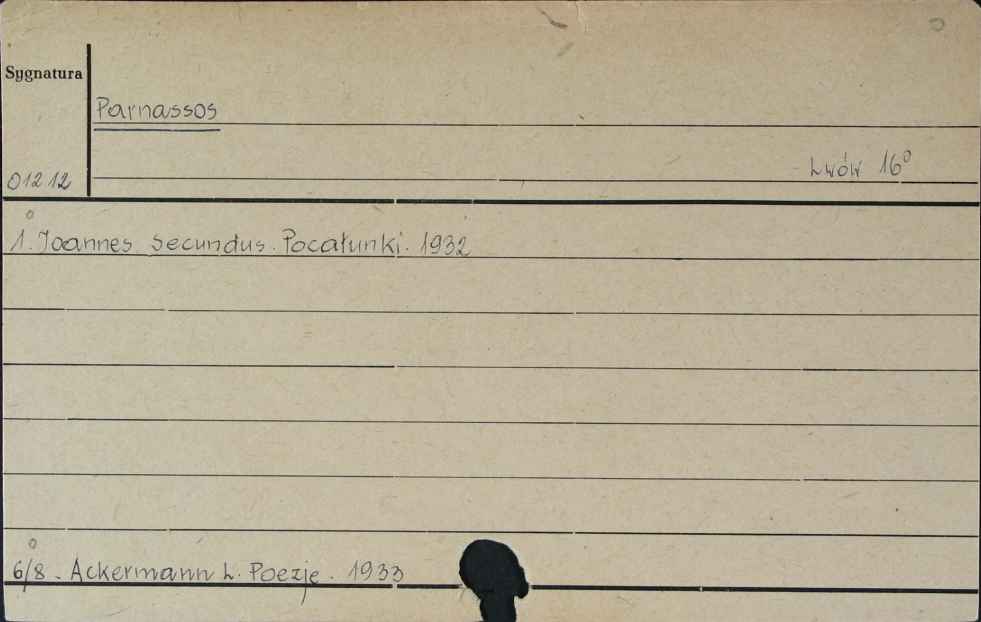 Sygnatura
Parnassos
Lwów 16°
012 12
1. Joannes Secundus. Pocałunki. 1932
6/8. Ackermann L. Poezje. 1933